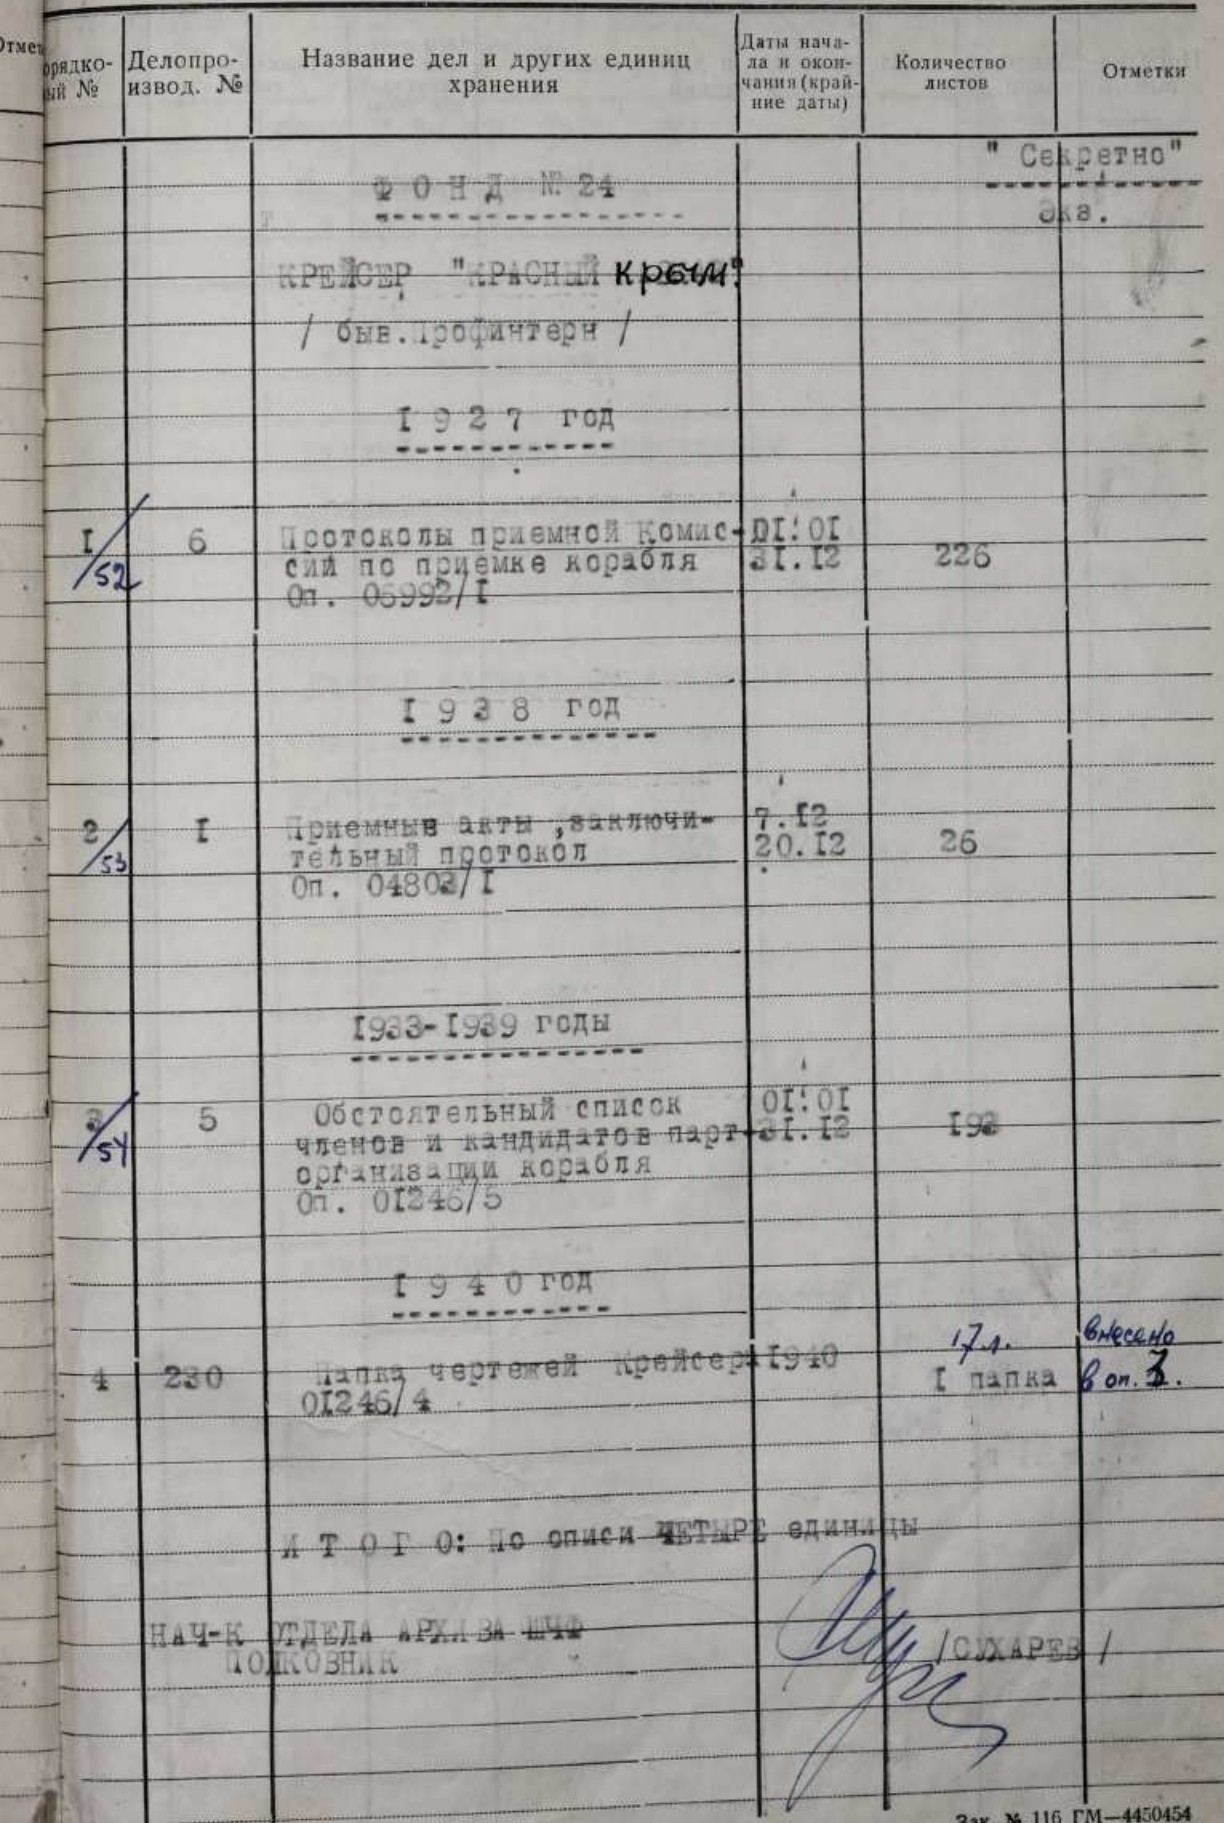 Отмет
орядко-
ый №
Делопро-
извод. №
Название дел и других единиц
хранения
Даты нача-
ла и окон-
чания (край-
ние даты)
Количество
листов
Отметки
" Секретно"
Экз.
Ф О Н Д № 24
КРЕЙСЕР "КРАСНЫЙ Крым"
/ быв.Профинтерн /
I 9 2 7 год
I/52 6 Протоколы приемной Комис- 0I.0I
сии по приемке корабля 3I.I2 226
Оп. 06992/I
I 9 3 8 год
2/53 I Приемные акты ,заключи- 7.I2
тельный протокол 20.I2 26
Оп. 04803/I
I933-I939 годы
3/54 5 Обстоятельный список 0I.0I
членов и кандидатов парт- 3I.I2 I93
организации корабля
Оп. 0I246/5
I 9 4 0 год
17л. внесено
4 230 Папка чертежей Крейсера I940 I папка в оп. 3.
0I246/4
И Т О Г О: По описи ЧЕТЫРЕ единицы
НАЧ-К ОТДЕЛА АРХИВА ШЧФ
ПОЛКОВНИК /СУХАРЕВ /
Зак. № 116 ГМ—4450454